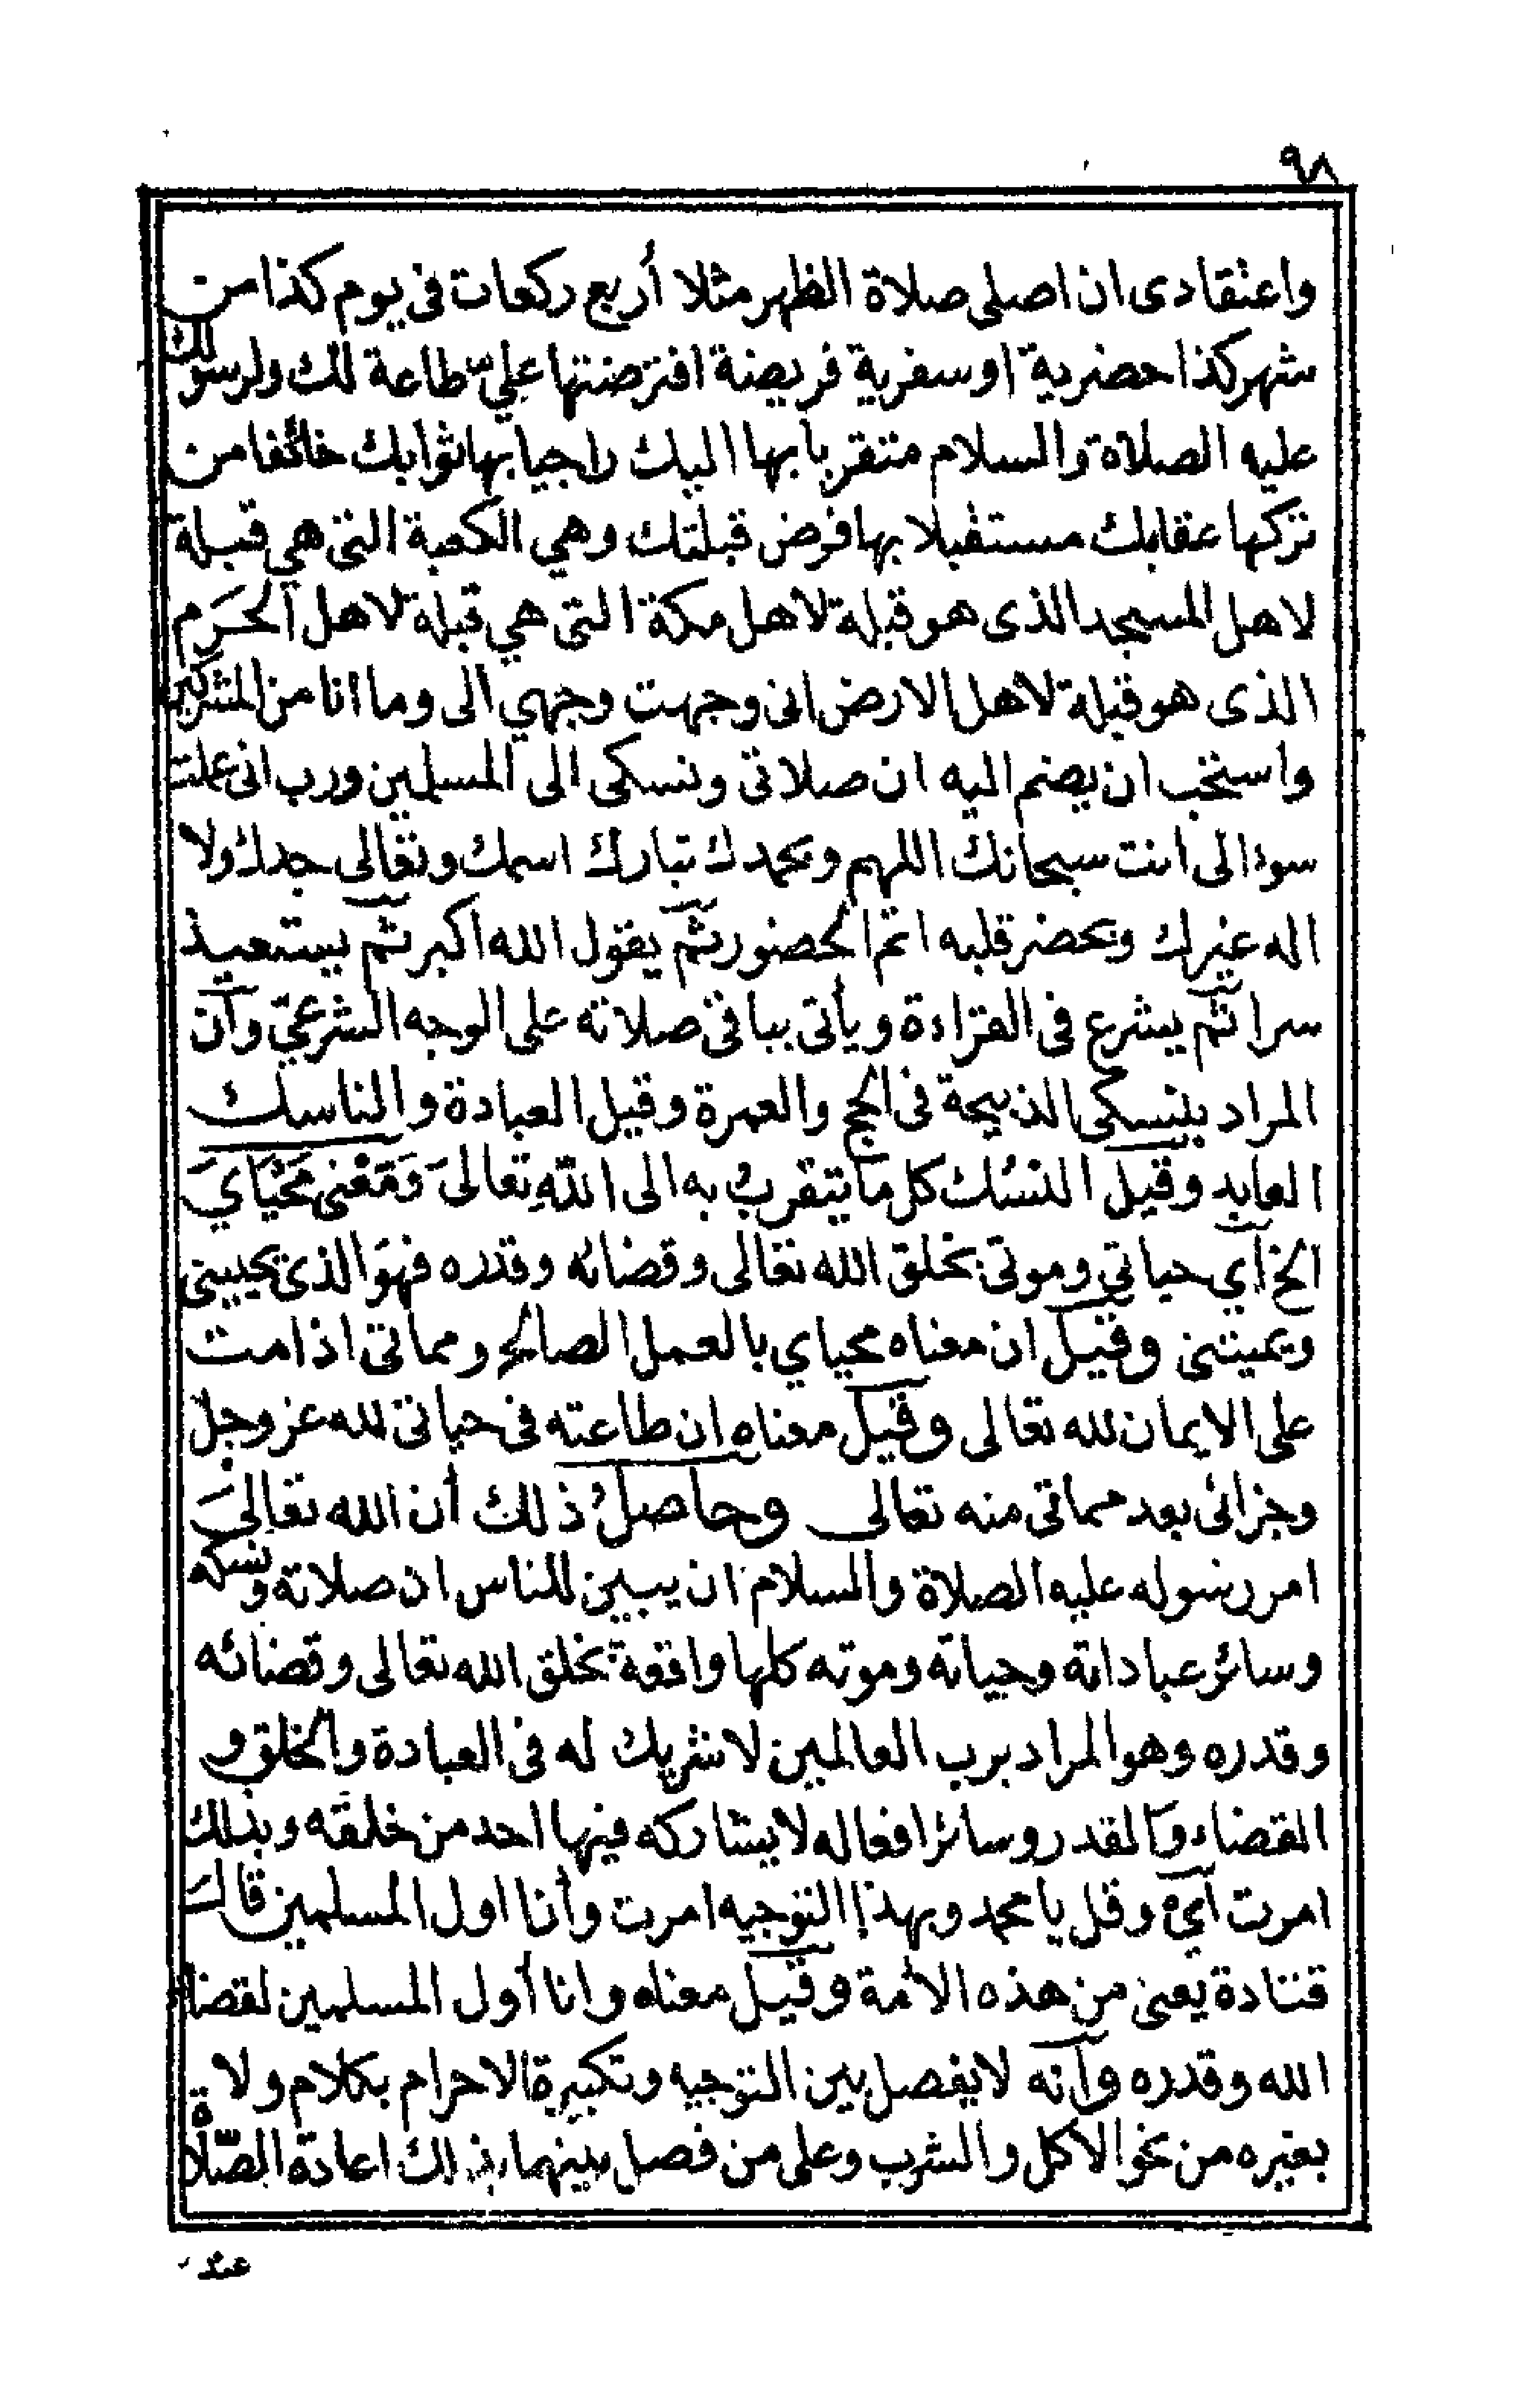 ٩٨
واعتقادى ان اصلى صلاة الظهر مثلا أربع ركعات فى يوم كذا من
شهر كذا حضرية او سفرية فريضة افترضتها عليّ طاعة لك ولرسولك
عليه الصلاة والسلام متقربا بها اليك راجيا بها ثوابك خائفا من
تركها عقابك مستقبلا بها فرض قبلتك وهي الكعبة التى هي قبلة
لاهل المسجد الذى هو قبلة لاهل مكة التى هي قبلة لاهل الحَرَم
الذى هو قبلة لاهل الارض انى وجهت وجهي الى وما انا من المشركين
واستحب ان يضم اليه ان صلاتى ونسكى الى المسلمين ورب انى عملت
سوءا الى انت سبحانك اللهم وبحمدك تبارك اسمك وتعالى جدك ولا
اله غيرك ويحضر قلبه اتم الحضور ثم يقول الله اكبر ثم يستعيذ
سرا ثم يشرع فى القراءة ويأتى بباقى صلاته على الوجه الشرعيّ وان
المراد بنسكى الذبيحة فى الحج والعمرة وقيل العبادة والناسك
العابد وقيل النسُك كل ما يتقربُ به الى اللّهِ تعالىَ وَمَعْنى مَحْيَايَ
الخ اي حياتي وموتى بخلق الله تعالى وقضائه وقدره فهوَ الذى يحيينى
ويميتنى وقيل ان معناه محياي بالعمل الصالح ومماتى اذا مت
على الايمان لله تعالى وقيل معناه ان طاعته فى حياتى لله عز وجل
وجزائى بعد مماتى منه تعالى وحاصلُ ذلك أن الله تعالىَ
امر رسوله عليه الصلاة والسلام ان يبين للناس ان صلاته ونسكه
وسائر عباداته وحياته وموته كلها واقعة بخلق الله تعالى وقضائه
وقدره وهو المراد برب العالمين لا شريك له فى العبادة والخلق و
القضاء والقدر وسائر افعاله لا يشاركه فيها احد من خلقه وبذلك
امرت اي وقل يا محمد وبهذا التوجيه امرت وأنا اول المسلمين قالَ
قتادة يعنى من هذه الأمة وقيل معناه وانا أول المسلمين لقضاء
الله وقدره وانه لا يفصل بين التوجيه وتكبيرة الاحرام بكلام ولا
بغيره من نحو الاكل والشرب وعلى من فصل بينهما بذلك اعادة الصّلاة
عند